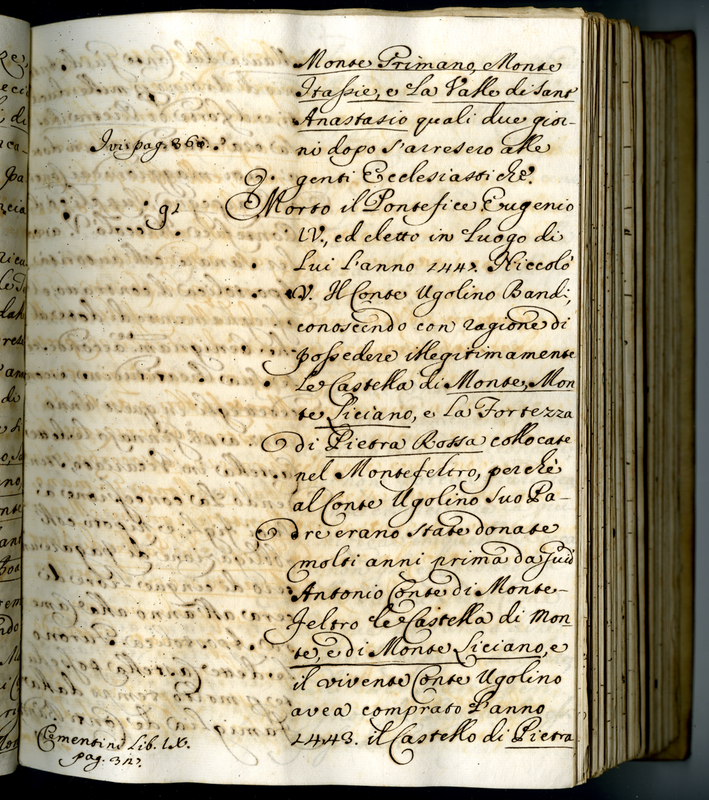 Monte Primano, Monte
Itassie, e la Valle di Sant
Anastasio quali due gior-
ni dopo s'arresero alle
genti Ecclesiastiche.
Ivi pag. 360.
91
Morto il Pontefice Eugenio
IV., ed eletto in luogo di
lui l'anno 1447. Niccolò
V. Il Conte Ugolino Bandi,
conoscendo con ragione di
possedere illegitimamente
le Castella di Monte, Mon
te Liciano, e la Fortezza
di Pietra Rossa collocate
nel Montefeltro, perchè
al Conte Ugolino suo Pa-
dre erano state donate
molti anni prima da Guid
Antonio Conte di Monte-
feltro le Castella di Mon
te, e di Monte Liciano, e
il vivente Conte Ugolino
avea comprato l'anno
1443. il Castello di Pietra
Clementini Lib. IX.
pag.